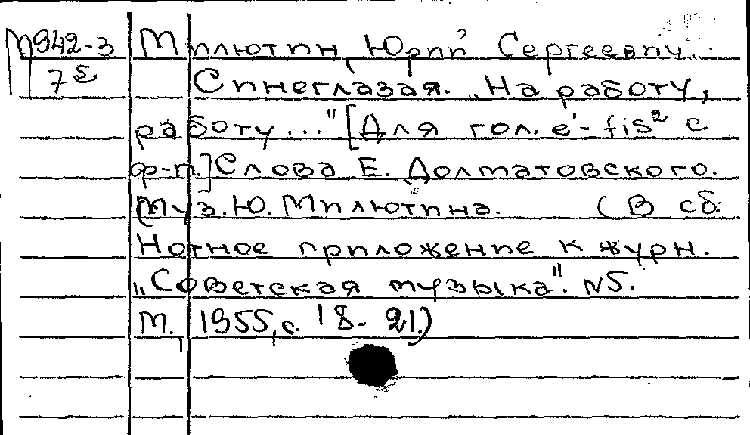 М942-3 Милютин, Юрий Сергеевич.
7б Синеглазая. „На работу,
работу..." [Для гол. e'-fis² с
ф-п.] Слова Е. Долматовского.
Муз. Ю. Милютина. (В сб.
Нотное приложение к журн.
„Советская музыка". №5.
М., 1955, с. 18-21.)